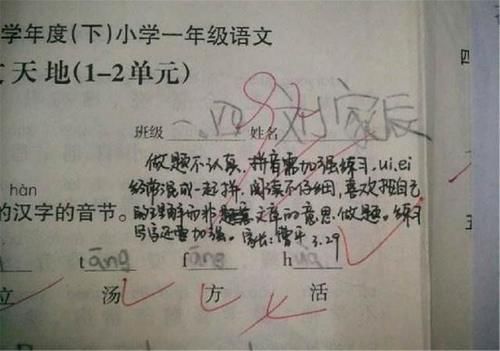 学年度(下)小学一年级语文
天地(1-2单元)
班级 一.四 姓名 刘家辰
做题不认真,拼音需加强练习,ui.ei
经常混成一起拼,阅读不仔细,喜欢按自己
hàn
的汉字的音节。
的理解而非文章的意思做题。练习
书写还需加强。家长:曹平 3.29
tāng f h
立 汤 方 活
四
五